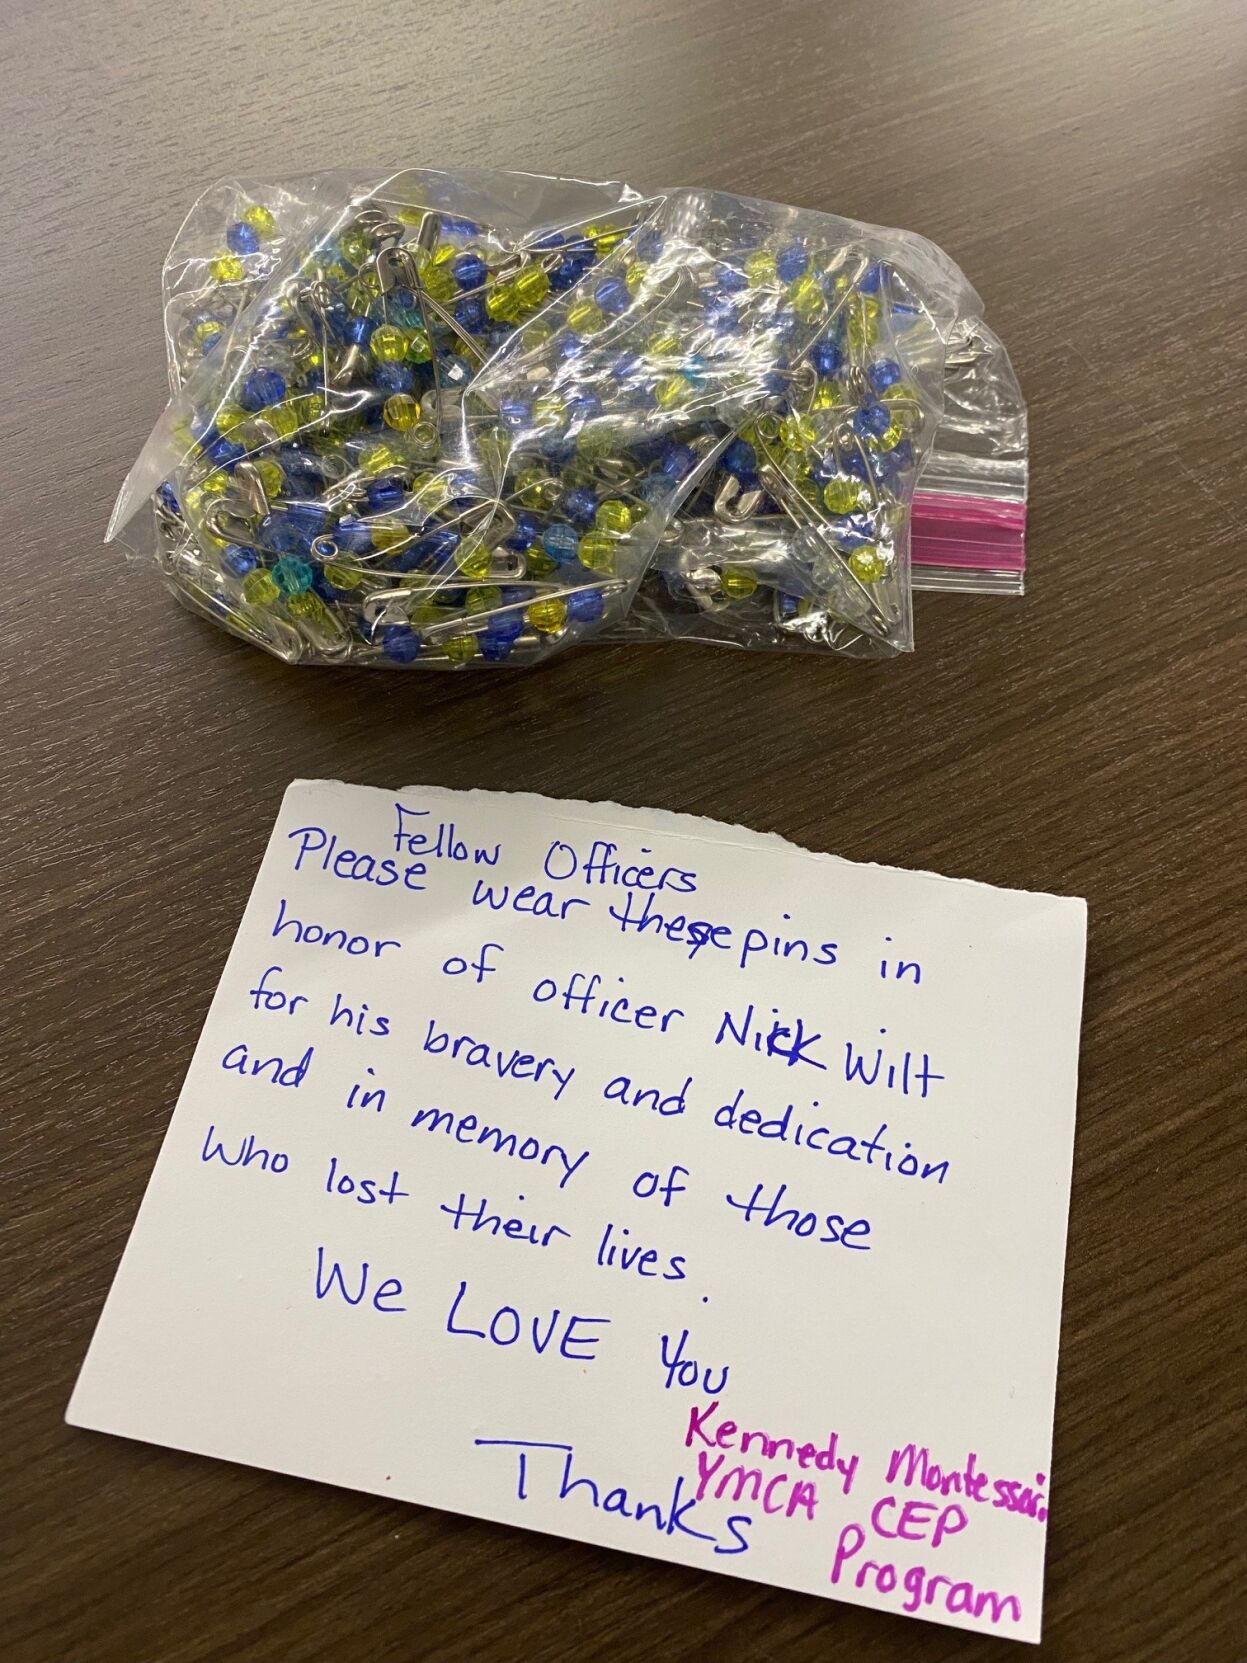 Fellow Officers
Please wear these pins in
honor of officer Nick Wilt
for his bravery and dedication
and in memory of those
who lost their lives.
We LOVE You
Thanks
Kennedy Montessori
YMCA CEP
Program